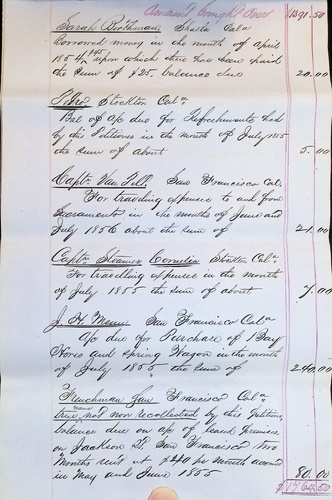 Amount brought over 1391.50
Sarah Boothman Shasta Cala
borrowed money in the month of April
1854, $45 upon which there has been paid
the sum of $25. balance due 20.00
Stockton Cala
Bal of a/c due for Refreshments had
by this Petitioner in the month of July 1855
the sum of about 5.00
Captn Van Pell. San Francisco Cal.
For traveling expenses to and from
Sacramento in the months of June and
July 1856 about the sum of 21.00
Captn Steamer Cornelia Stockton Cala
For travelling expenses in the month
of July 1855 the sum of about 7.00
J. H. San Francisco Cala
a/c due for Purchase of 1 Bay
Horse and Spring Wagon in the month
of July 1855, the sum of 240.00
Frenchman San Francisco Cala
true name not now recollected by this Petitioner,
balance due on a/c of leased Premises
on Jackson St. San Francisco two
Months rent at $240 per month accrued
in May and June 1855 80.00
$1764.50